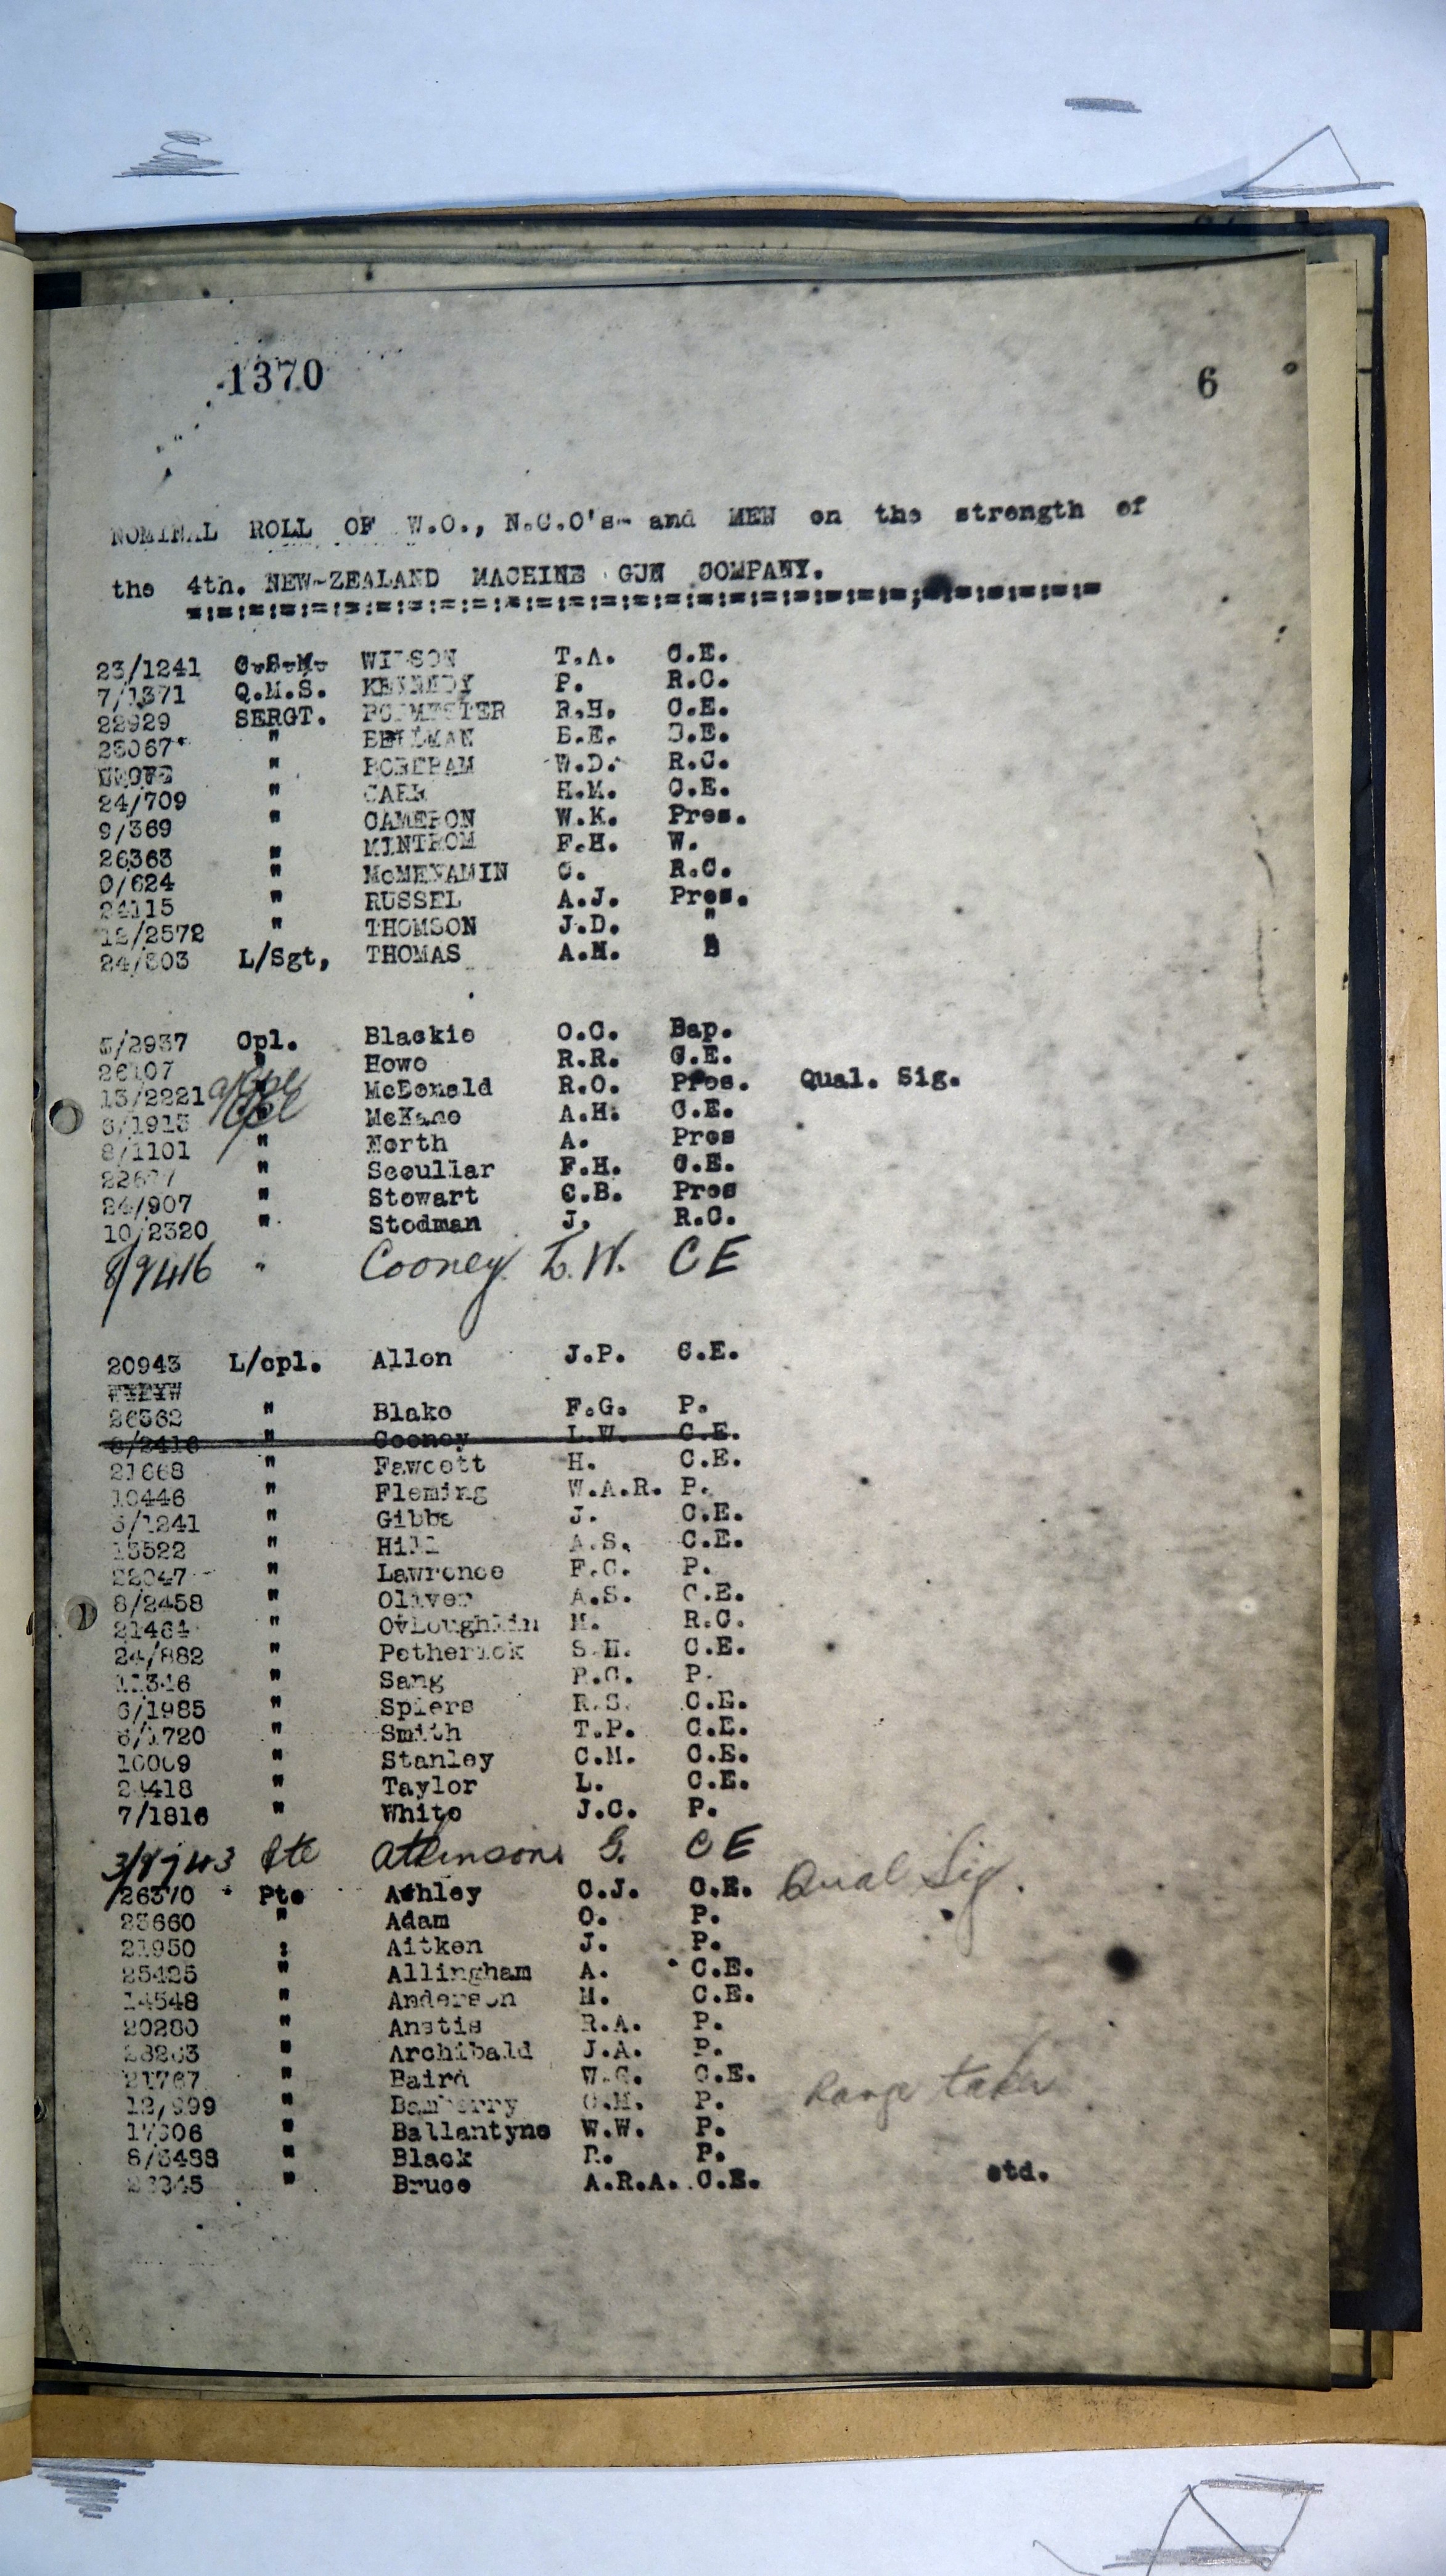 1370
6
NOMINAL ROLL OF W.O., N.C.O's- and MEN on the strength of
the 4th. NEW-ZEALAND MACHINE GUN COMPANY.
23/1241 C.S.M. WILSON T.A. C.E.
7/1371 Q.M.S. KENNEDY P. R.C.
22929 SERGT. R.H. C.E.
23067 " BELLMAN E.E.
" BOREHAM W.D. R.C.
24/709 " CARR H.M. C.E.
9/369 " CAMERON W.K. Pres.
26363 " MINTROM F.H. W.
" McMENAMIN C. R.C.
24115 " RUSSEL A.J. Pres.
12/2572 " THOMSON J.D. "
L/Sgt, THOMAS A.N.
5/2937 Cpl. Blackie O.C. Bap.
26107 Howe R.R. C.E.
13/2221 McDonald R.O. Pres. Qual. Sig.
6/1913 McKane A.H. C.E.
8/1101 " North A. Pres
" Scoullar F.H. C.E.
24/907 " Stewart C.B. Pres
10/2320 " Stodman J. R.C.
8/2416 " Cooney L.W. CE
20943 L/cpl. Allen J.P. C.E.
26362 " Blake F.G. P.
8/2416 " Cooney L.W. C.E.
21668 " Fawcett H. C.E.
10446 " Fleming W.A.R. P.
" Gibbs J. C.E.
13522 " Hill A.S. C.E.
" Lawrence F.C. P.
8/2458 " Oliver A.S. C.E.
21464 " O'Loughlin M. R.C.
24/882 " Petherick S.H. C.E.
11346 " Sang P.
6/1985 " Spiers R.S. C.E.
6/1720 " Smith T.P. C.E.
10009 " Stanley C.M. C.E.
" Taylor L. C.E.
7/1816 " White J.C. P.
Pte Atkinson. G. CE
26370 Pte Ashley C.J. C.E. Qual Sig.
23660 " Adam O. P.
21950 : Aitken J. P.
25425 " Allingham A. C.E.
14548 " Anderson C.E.
20280 " Anstis R.A. P.
" Archibald J.A. P.
21767 " Baird W.G. C.E. Range taker
" P.
" Ballantyne W.W. P.
8/3488 " Black R. P.
" Bruce A.R.A. C.E. std.